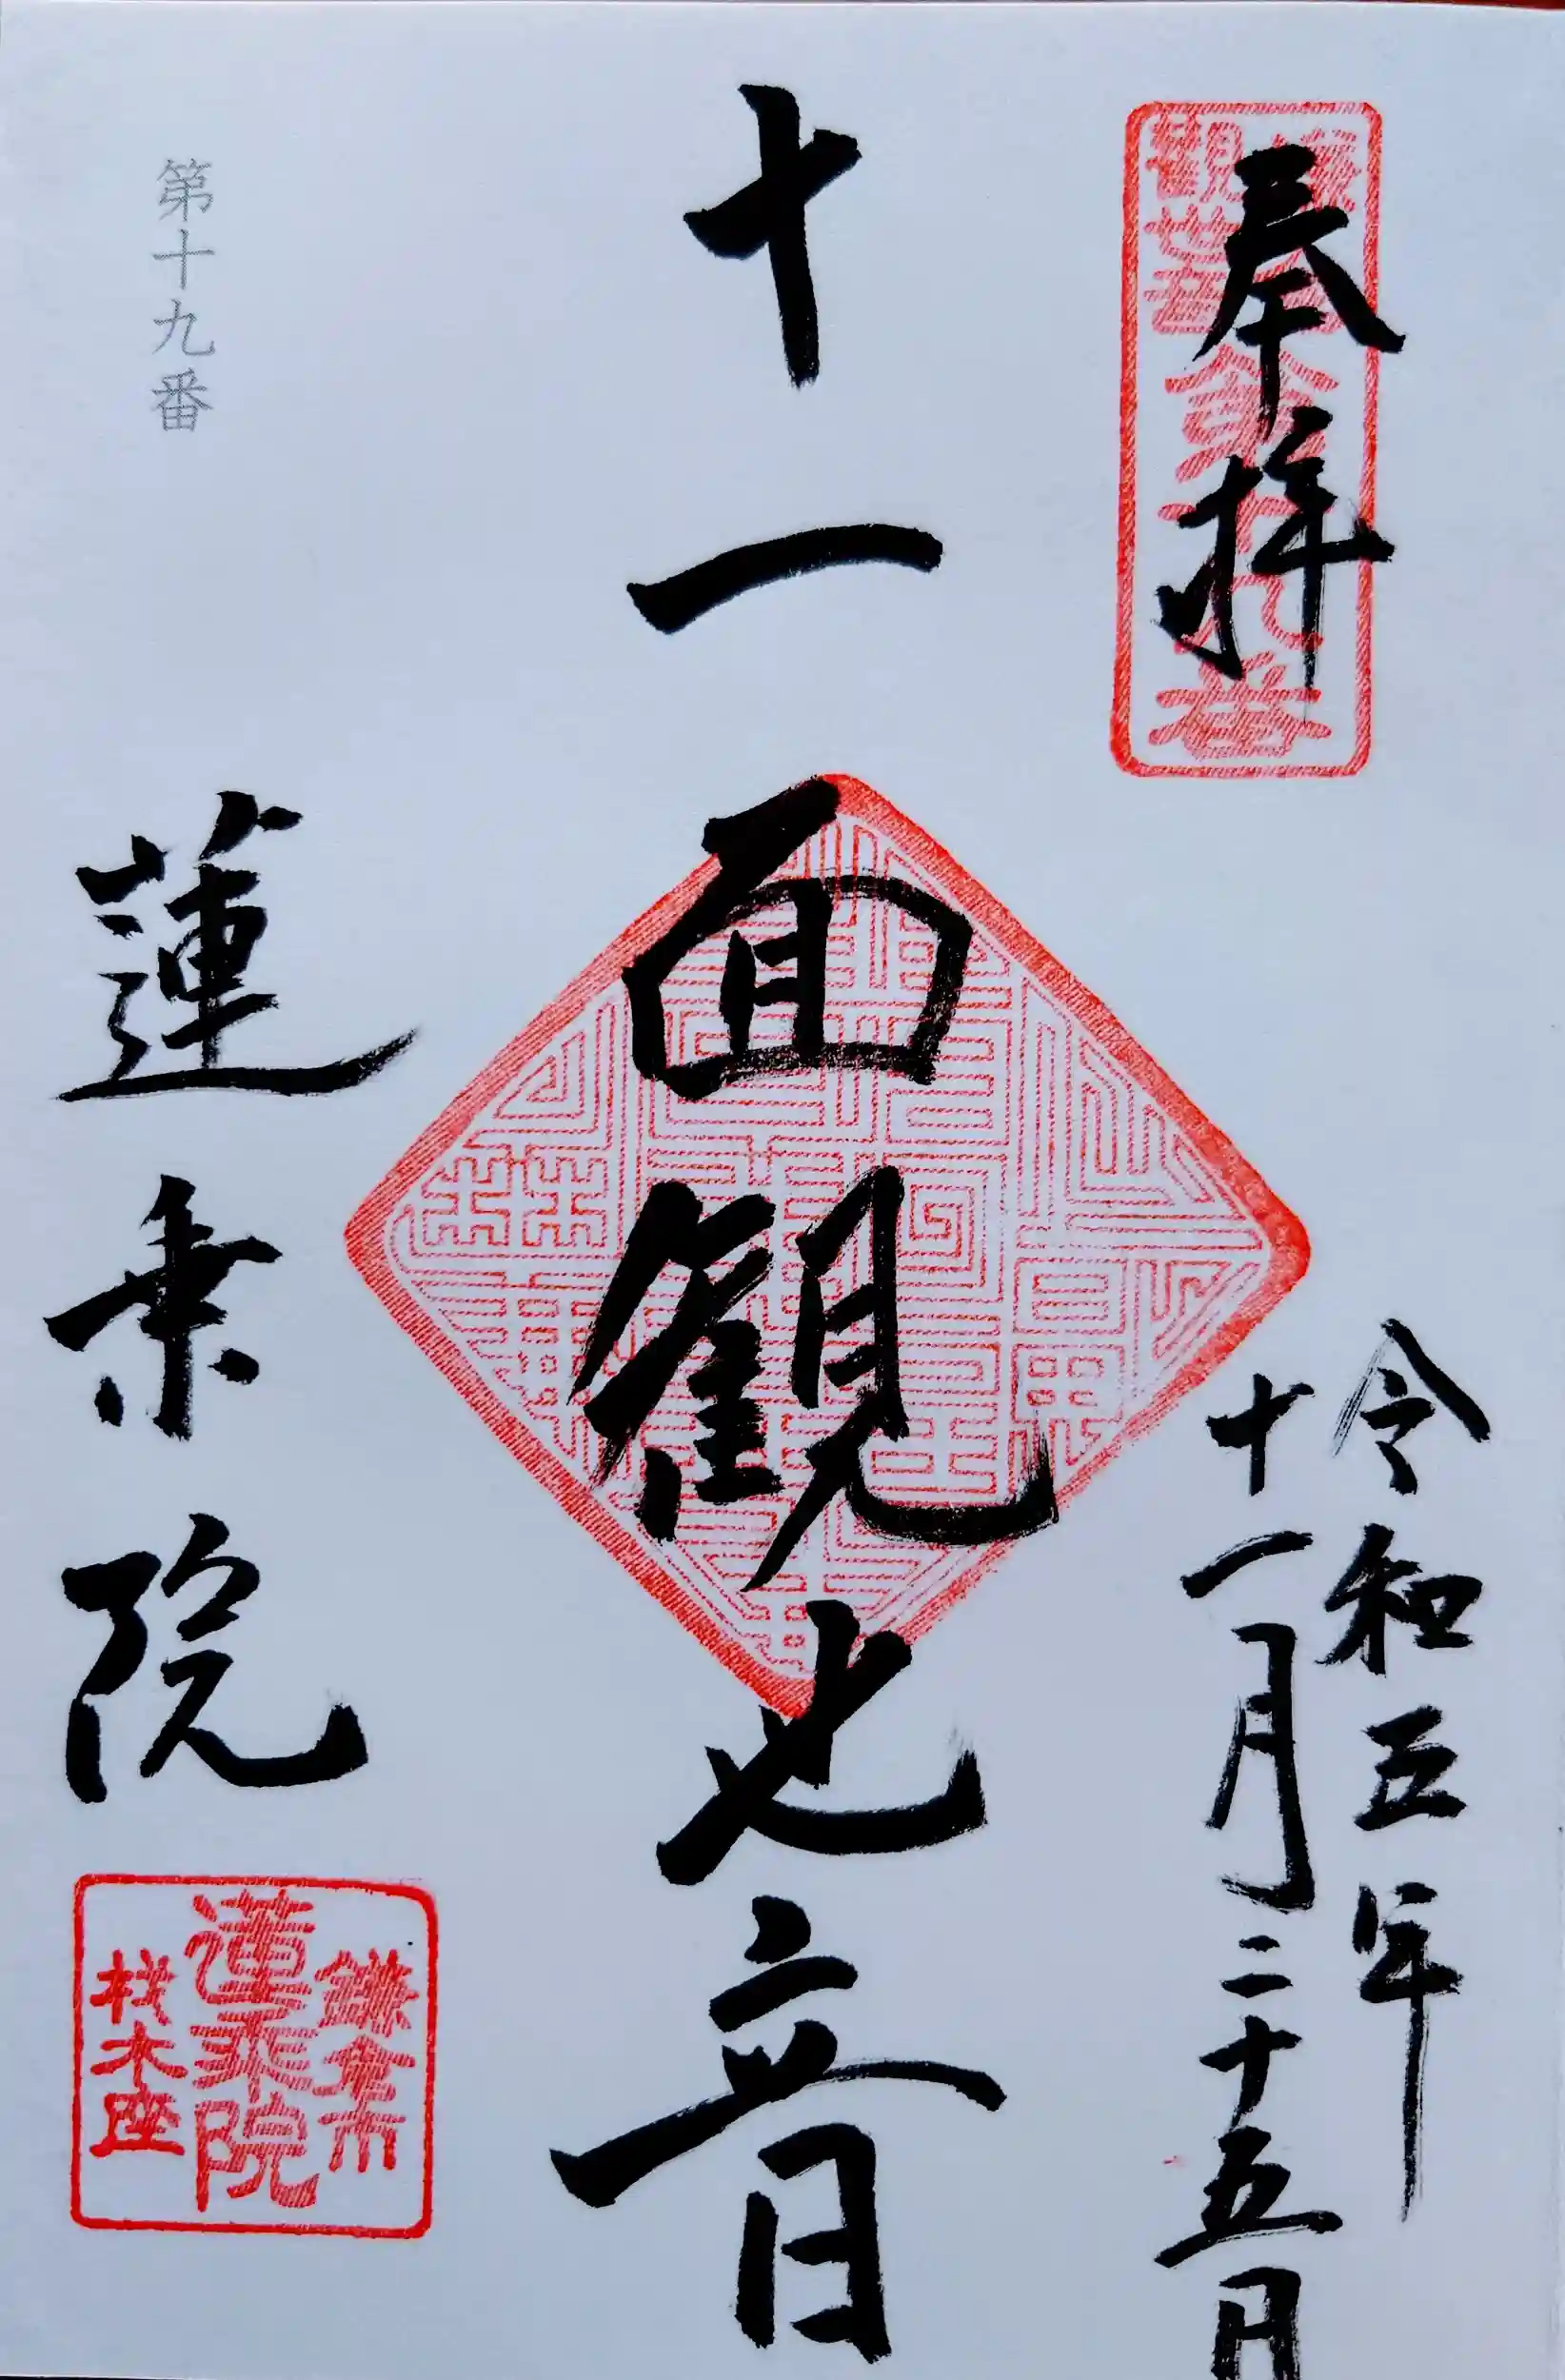 奉拝
鎌倉
観世音
第十九番
令和五年
十一月二十五日
十一面観世音
第十九番
蓮乗院
鎌倉市
蓮乗院
材木座